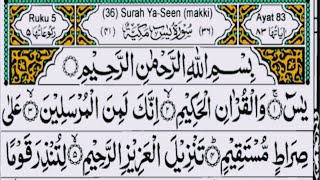 Ruku 5 (36) Surah Ya-Seen (makki) Ayat 83
رُكُوْعَاتُهَا ٥ (٤١) سُوْرَةُ يٰسٓ مَكِّيَّةٌ (٣٦) اٰيَاتُهَا ٨٣
بِسْمِ اللّٰهِ الرَّحْمٰنِ الرَّحِيْمِ
يٰسٓ ۚ ﴿١﴾ وَالْقُرْاٰنِ الْحَكِيْمِ ۙ ﴿٢﴾ اِنَّكَ لَمِنَ الْمُرْسَلِيْنَ ۙ ﴿٣﴾ عَلٰى
صِرَاطٍ مُّسْتَقِيْمٍ ؕ ﴿٤﴾ تَنْزِيْلَ الْعَزِيْزِ الرَّحِيْمِ ۙ ﴿٥﴾ لِتُنْذِرَ قَوْمًا